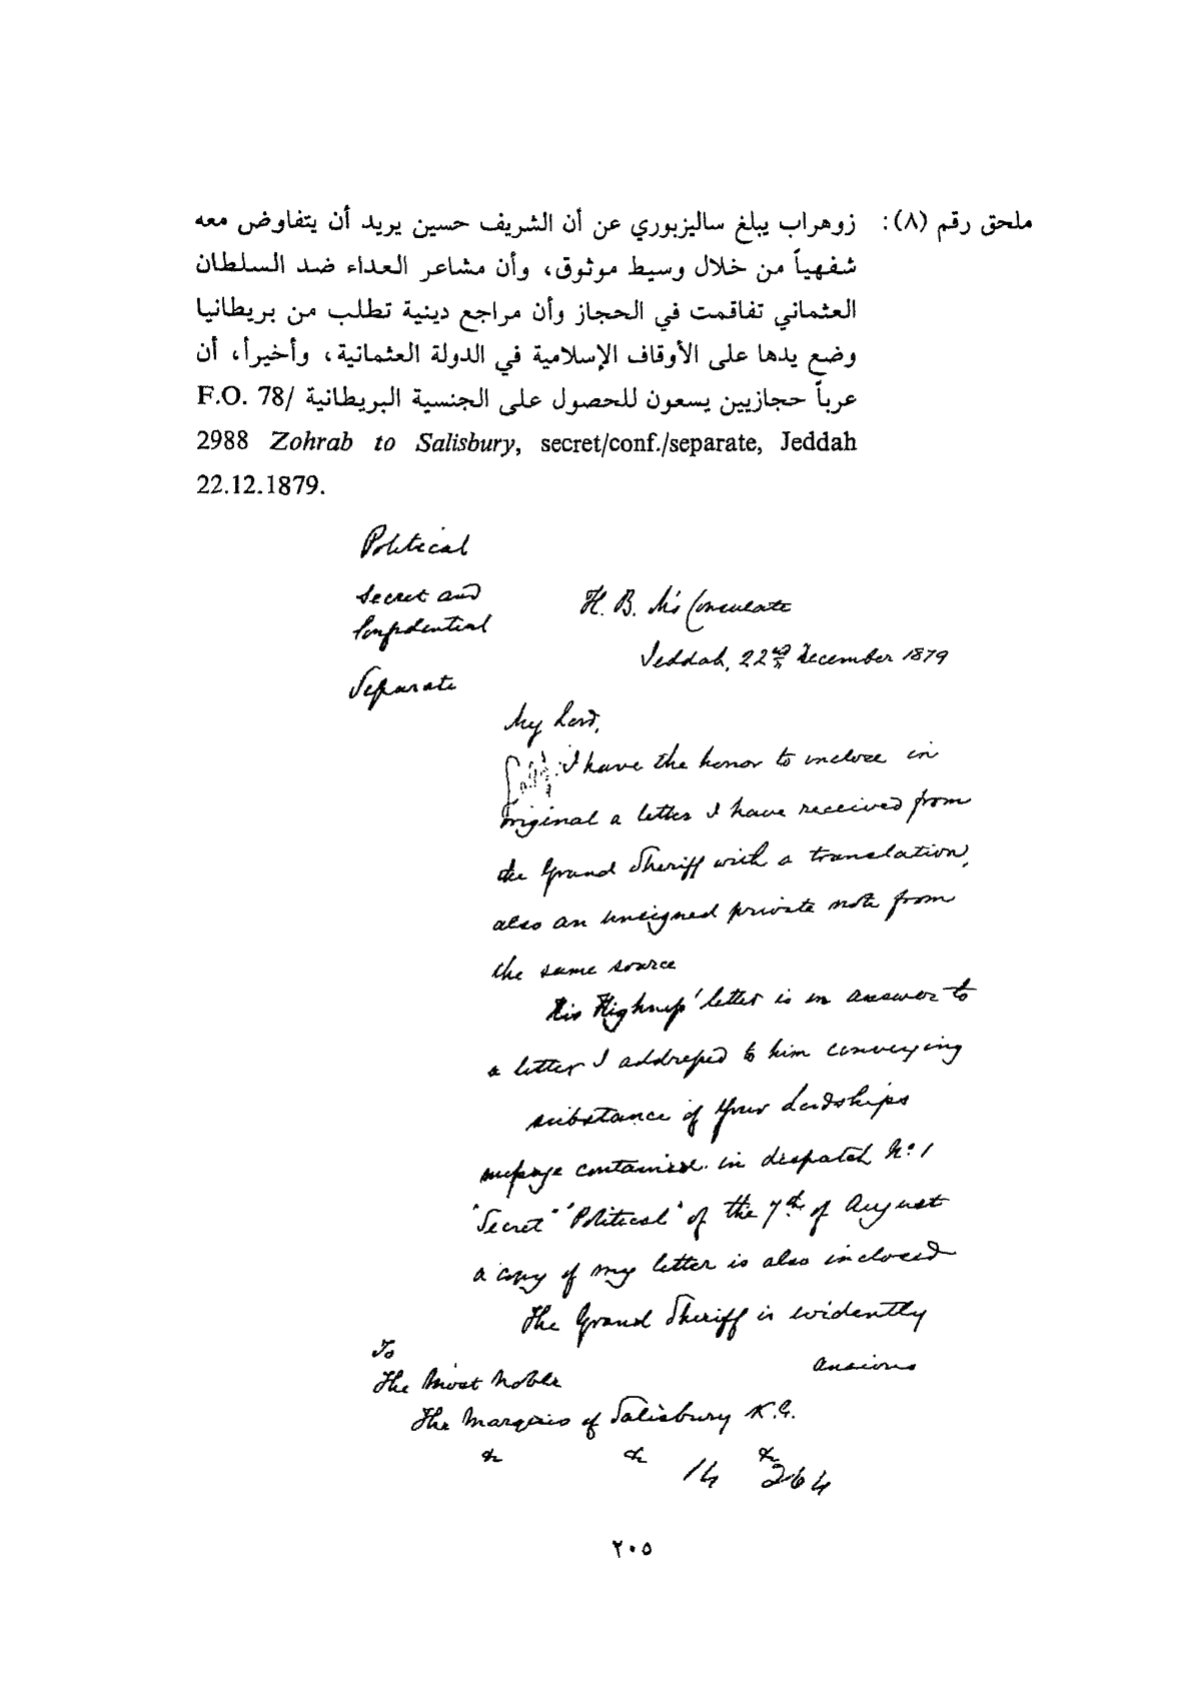 ملحق رقم (٨): زوهراب يبلغ ساليزبوري عن أن الشريف حسين يريد أن يتفاوض معه
شفهياً من خلال وسيط موثوق، وأن مشاعر العداء ضد السلطان
العثماني تفاقمت في الحجاز وأن مراجع دينية تطلب من بريطانيا
وضع يدها على الأوقاف الإسلامية في الدولة العثمانية، وأخيراً، أن
عرباً حجازيين يسعون للحصول على الجنسية البريطانية F.O. 78/
2988 Zohrab to Salisbury, secret/conf./separate, Jeddah
22.12.1879.
Political
Secret and
Confidential
Separate
H. B. M's Consulate
Jeddah, 22nd December 1879
My Lord,
I have the honor to inclose in
original a letter I have received from
the Grand Sheriff with a translation,
also an unsigned private note from
the same source
His Highness' letter is in answer to
a letter I addressed to him conveying
substance of Your Lordships
message contained in dispatch No: 1
"Secret" "Political" of the 7th of August
a copy of my letter is also inclosed
The Grand Sheriff is evidently
anxious
To
The Most Noble
The Marquis of Salisbury K.G.
&c &c &c
14 264
٢٠٥